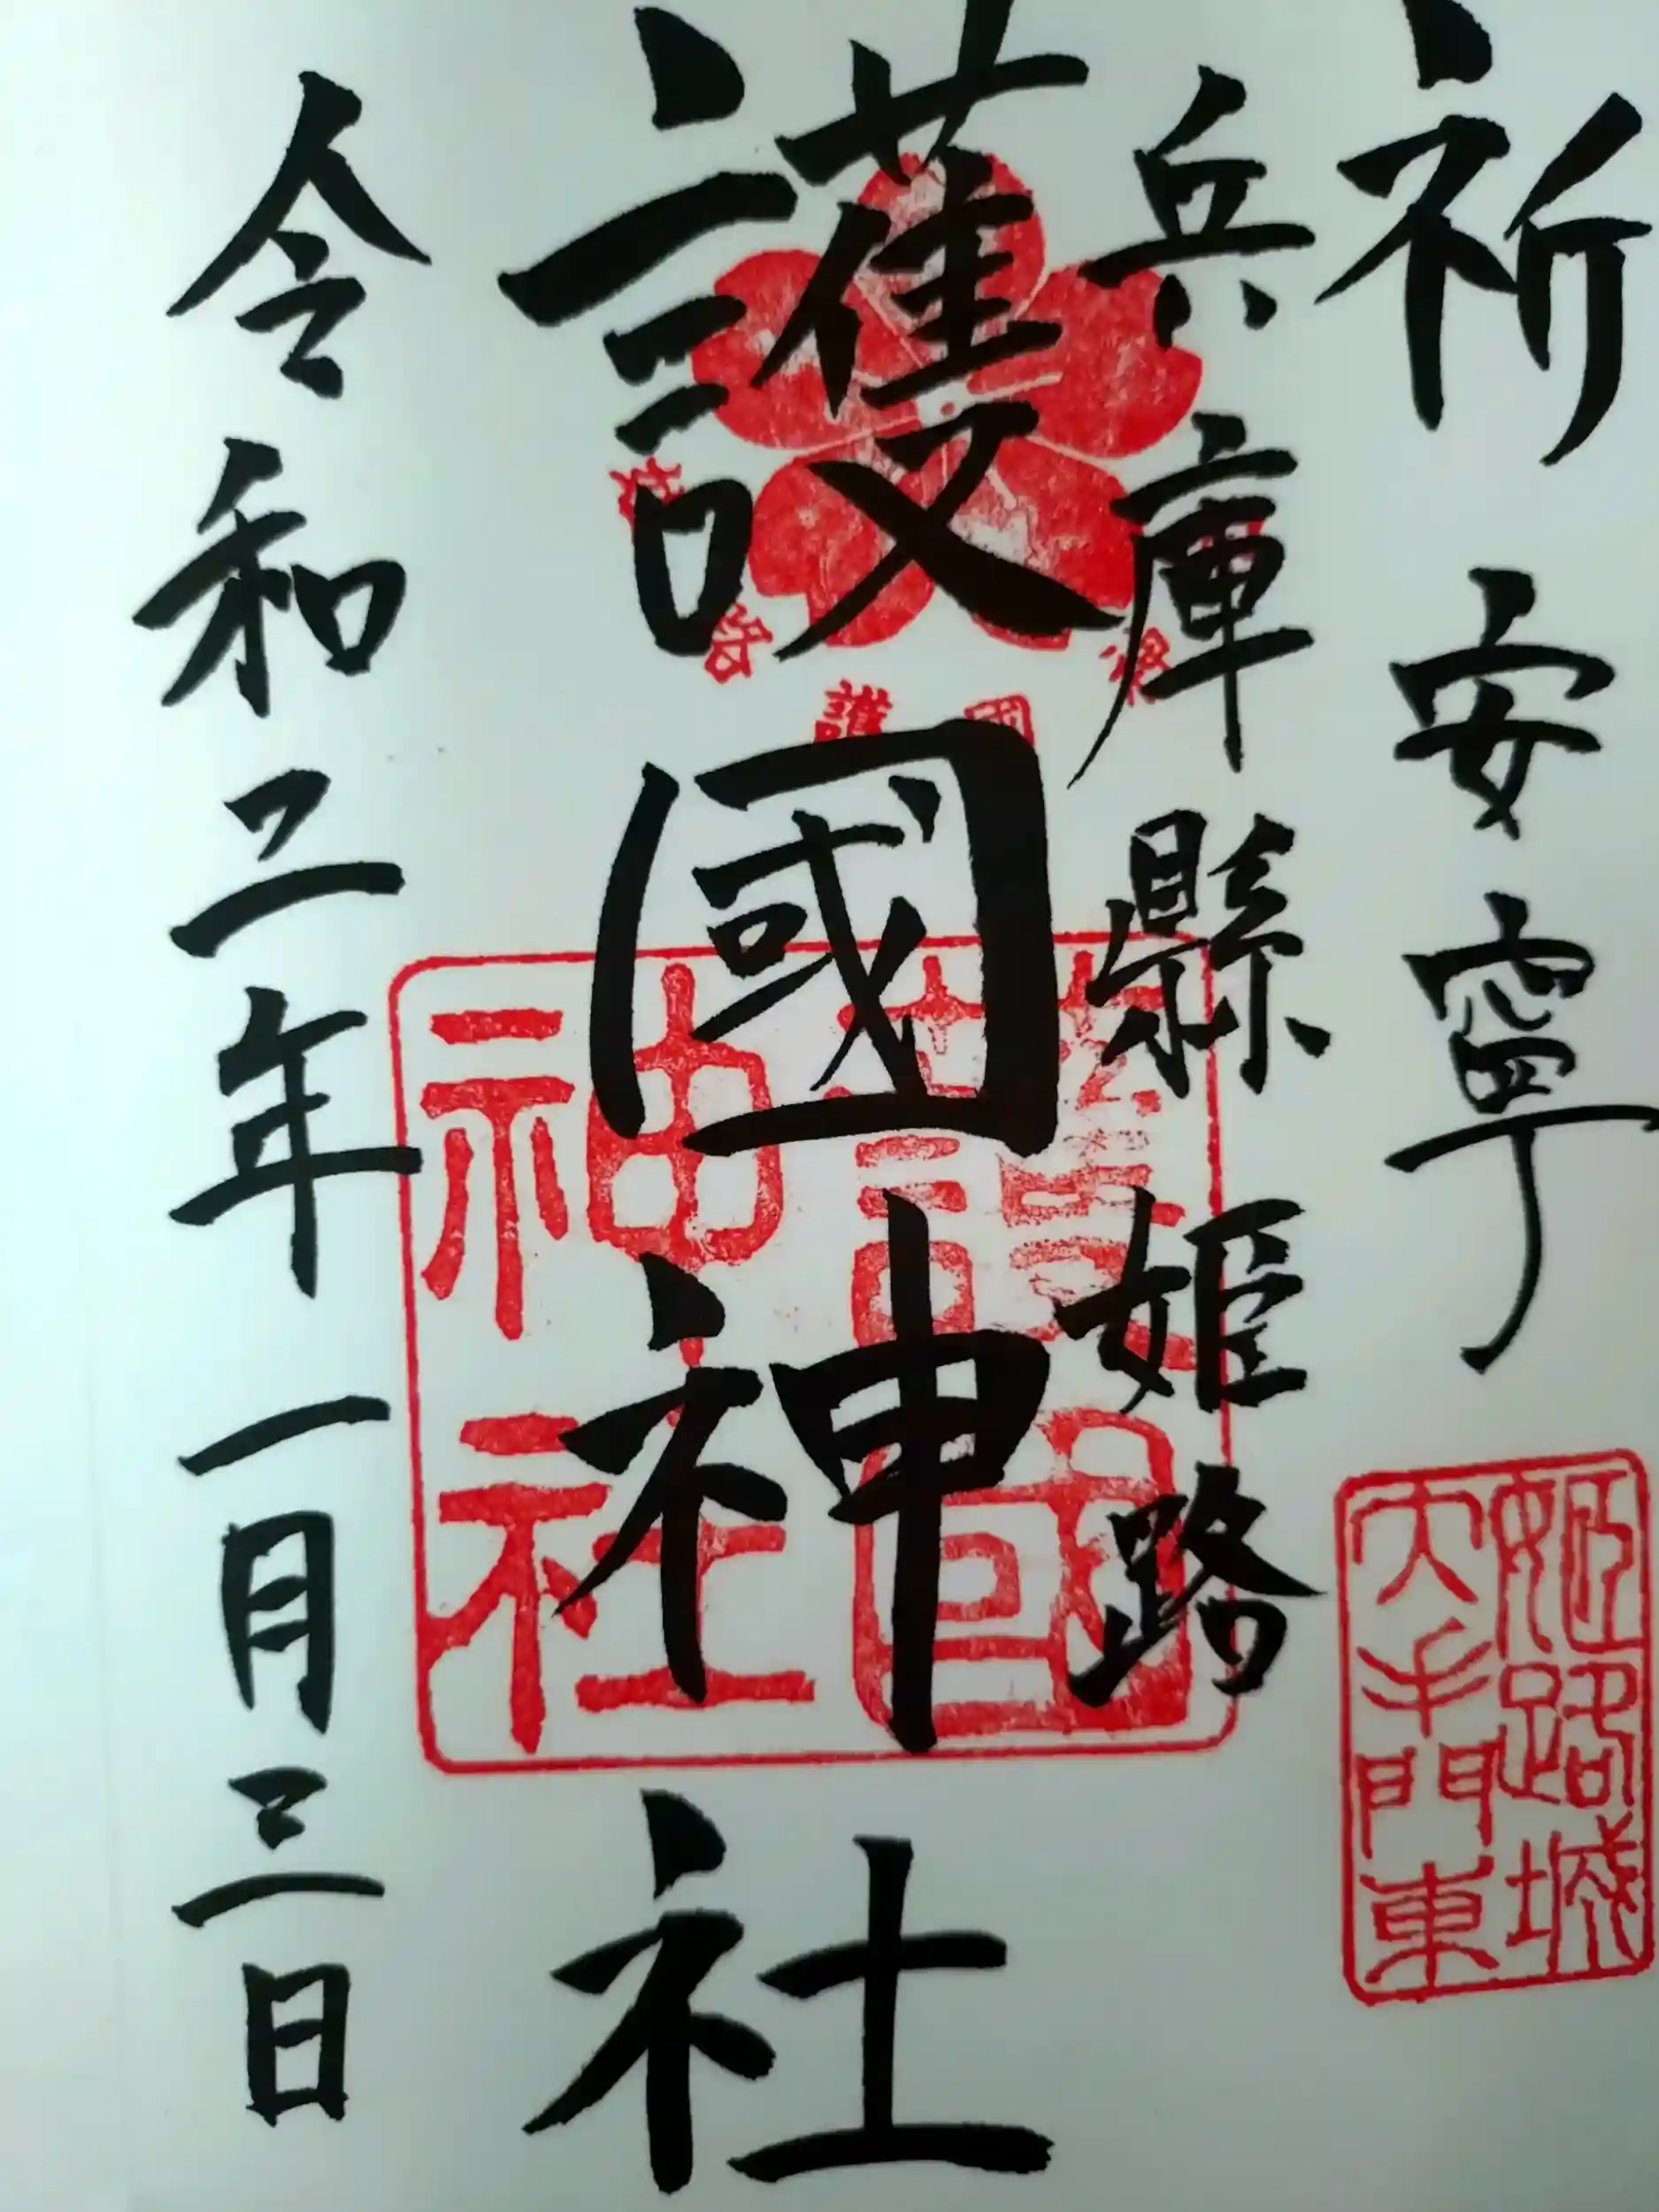 祈安寧
姫路城
大手門東
兵庫縣姫路
護國神社
護國
神社
令和二年一月三日